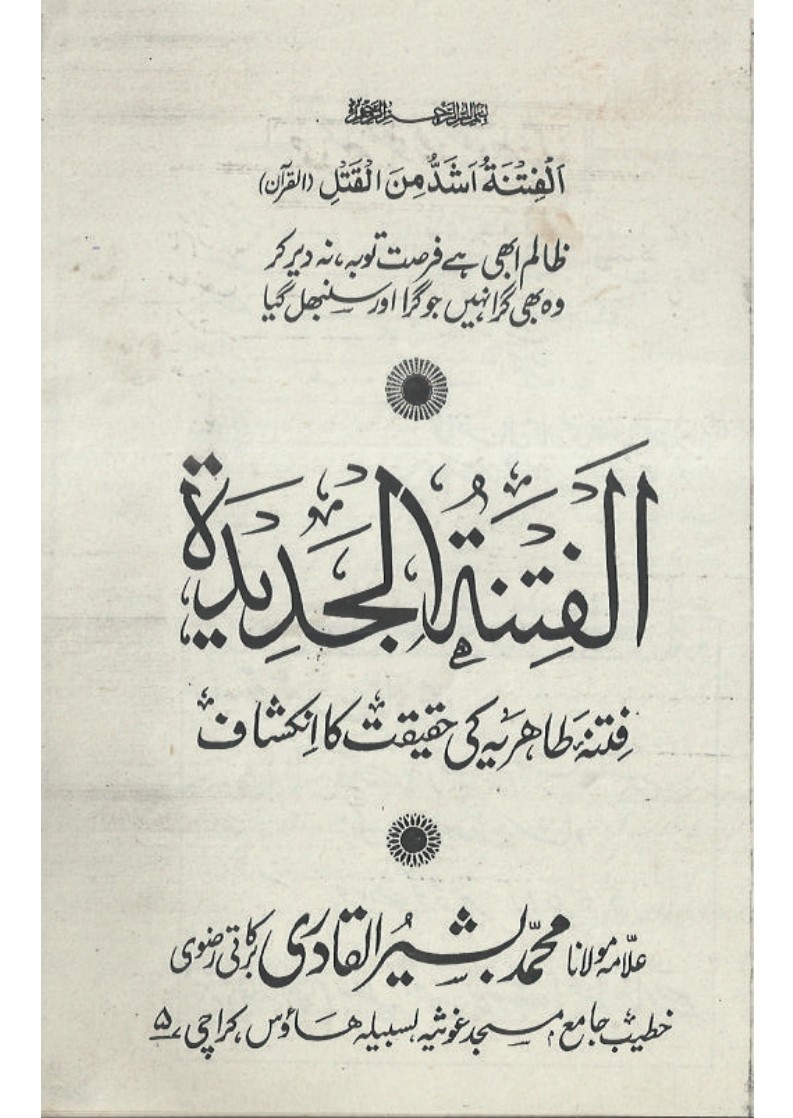 بسم الله الرحمن الرحيم
اَلْفِتْنَةُ اَشَدُّ مِنَ الْقَتْلِ (القرآن)
ظالم ابھی ہے فرصت توبہ، نہ دیر کر
وہ بھی گرا نہیں جو گرا اور سنبھل گیا
الفِتنۃُ الجَدِیدۃ
فِتنۂ طاھریہ کی حقیقت کا اِنکشاف
علّامہ مولانا محمّد بشیرُ القادری برکاتی رضوی
خطیب جامع مسجد غوثیہ، لسبیلہ ھاؤس، کراچی ۵